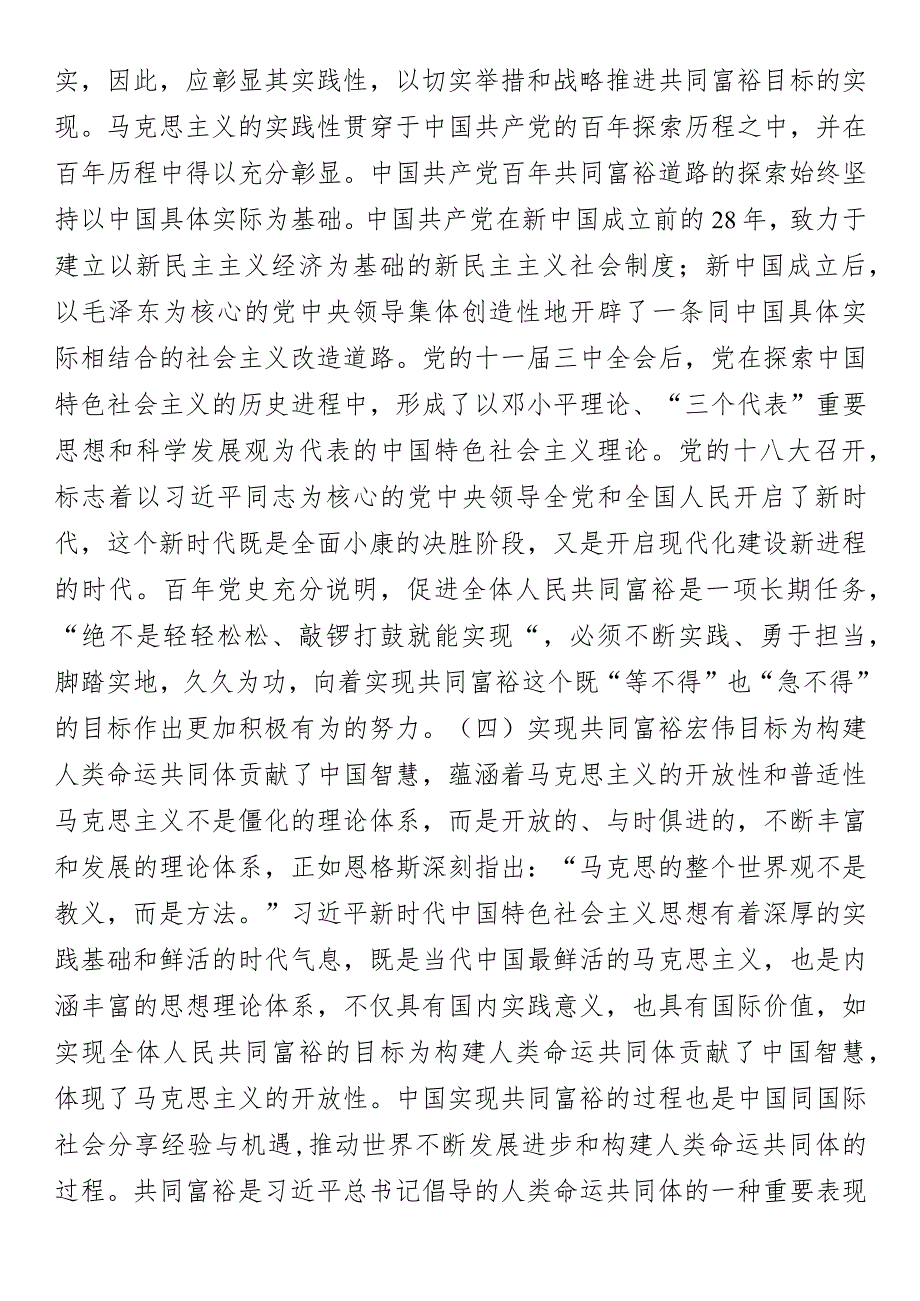 实，因此，应彰显其实践性，以切实举措和战略推进共同富裕目标的实
现。马克思主义的实践性贯穿于中国共产党的百年探索历程之中，并在
百年历程中得以充分彰显。中国共产党百年共同富裕道路的探索始终坚
持以中国具体实际为基础。中国共产党在新中国成立前的28年，致力于
建立以新民主主义经济为基础的新民主主义社会制度；新中国成立后，
以毛泽东为核心的党中央领导集体创造性地开辟了一条同中国具体实
际相结合的社会主义改造道路。党的十一届三中全会后，党在探索中国
特色社会主义的历史进程中，形成了以邓小平理论、“三个代表”重要
思想和科学发展观为代表的中国特色社会主义理论。党的十八大召开，
标志着以习近平同志为核心的党中央领导全党和全国人民开启了新时
代，这个新时代既是全面小康的决胜阶段，又是开启现代化建设新进程
的时代。百年党史充分说明，促进全体人民共同富裕是一项长期任务，
“绝不是轻轻松松、敲锣打鼓就能实现“，必须不断实践、勇于担当，
脚踏实地，久久为功，向着实现共同富裕这个既“等不得”也“急不得”
的目标作出更加积极有为的努力。（四）实现共同富裕宏伟目标为构建
人类命运共同体贡献了中国智慧，蕴涵着马克思主义的开放性和普适性
马克思主义不是僵化的理论体系，而是开放的、与时俱进的，不断丰富
和发展的理论体系，正如恩格斯深刻指出：“马克思的整个世界观不是
教义，而是方法。”习近平新时代中国特色社会主义思想有着深厚的实
践基础和鲜活的时代气息，既是当代中国最鲜活的马克思主义，也是内
涵丰富的思想理论体系，不仅具有国内实践意义，也具有国际价值，如
实现全体人民共同富裕的目标为构建人类命运共同体贡献了中国智慧，
体现了马克思主义的开放性。中国实现共同富裕的过程也是中国同国际
社会分享经验与机遇,推动世界不断发展进步和构建人类命运共同体的
过程。共同富裕是习近平总书记倡导的人类命运共同体的一种重要表现